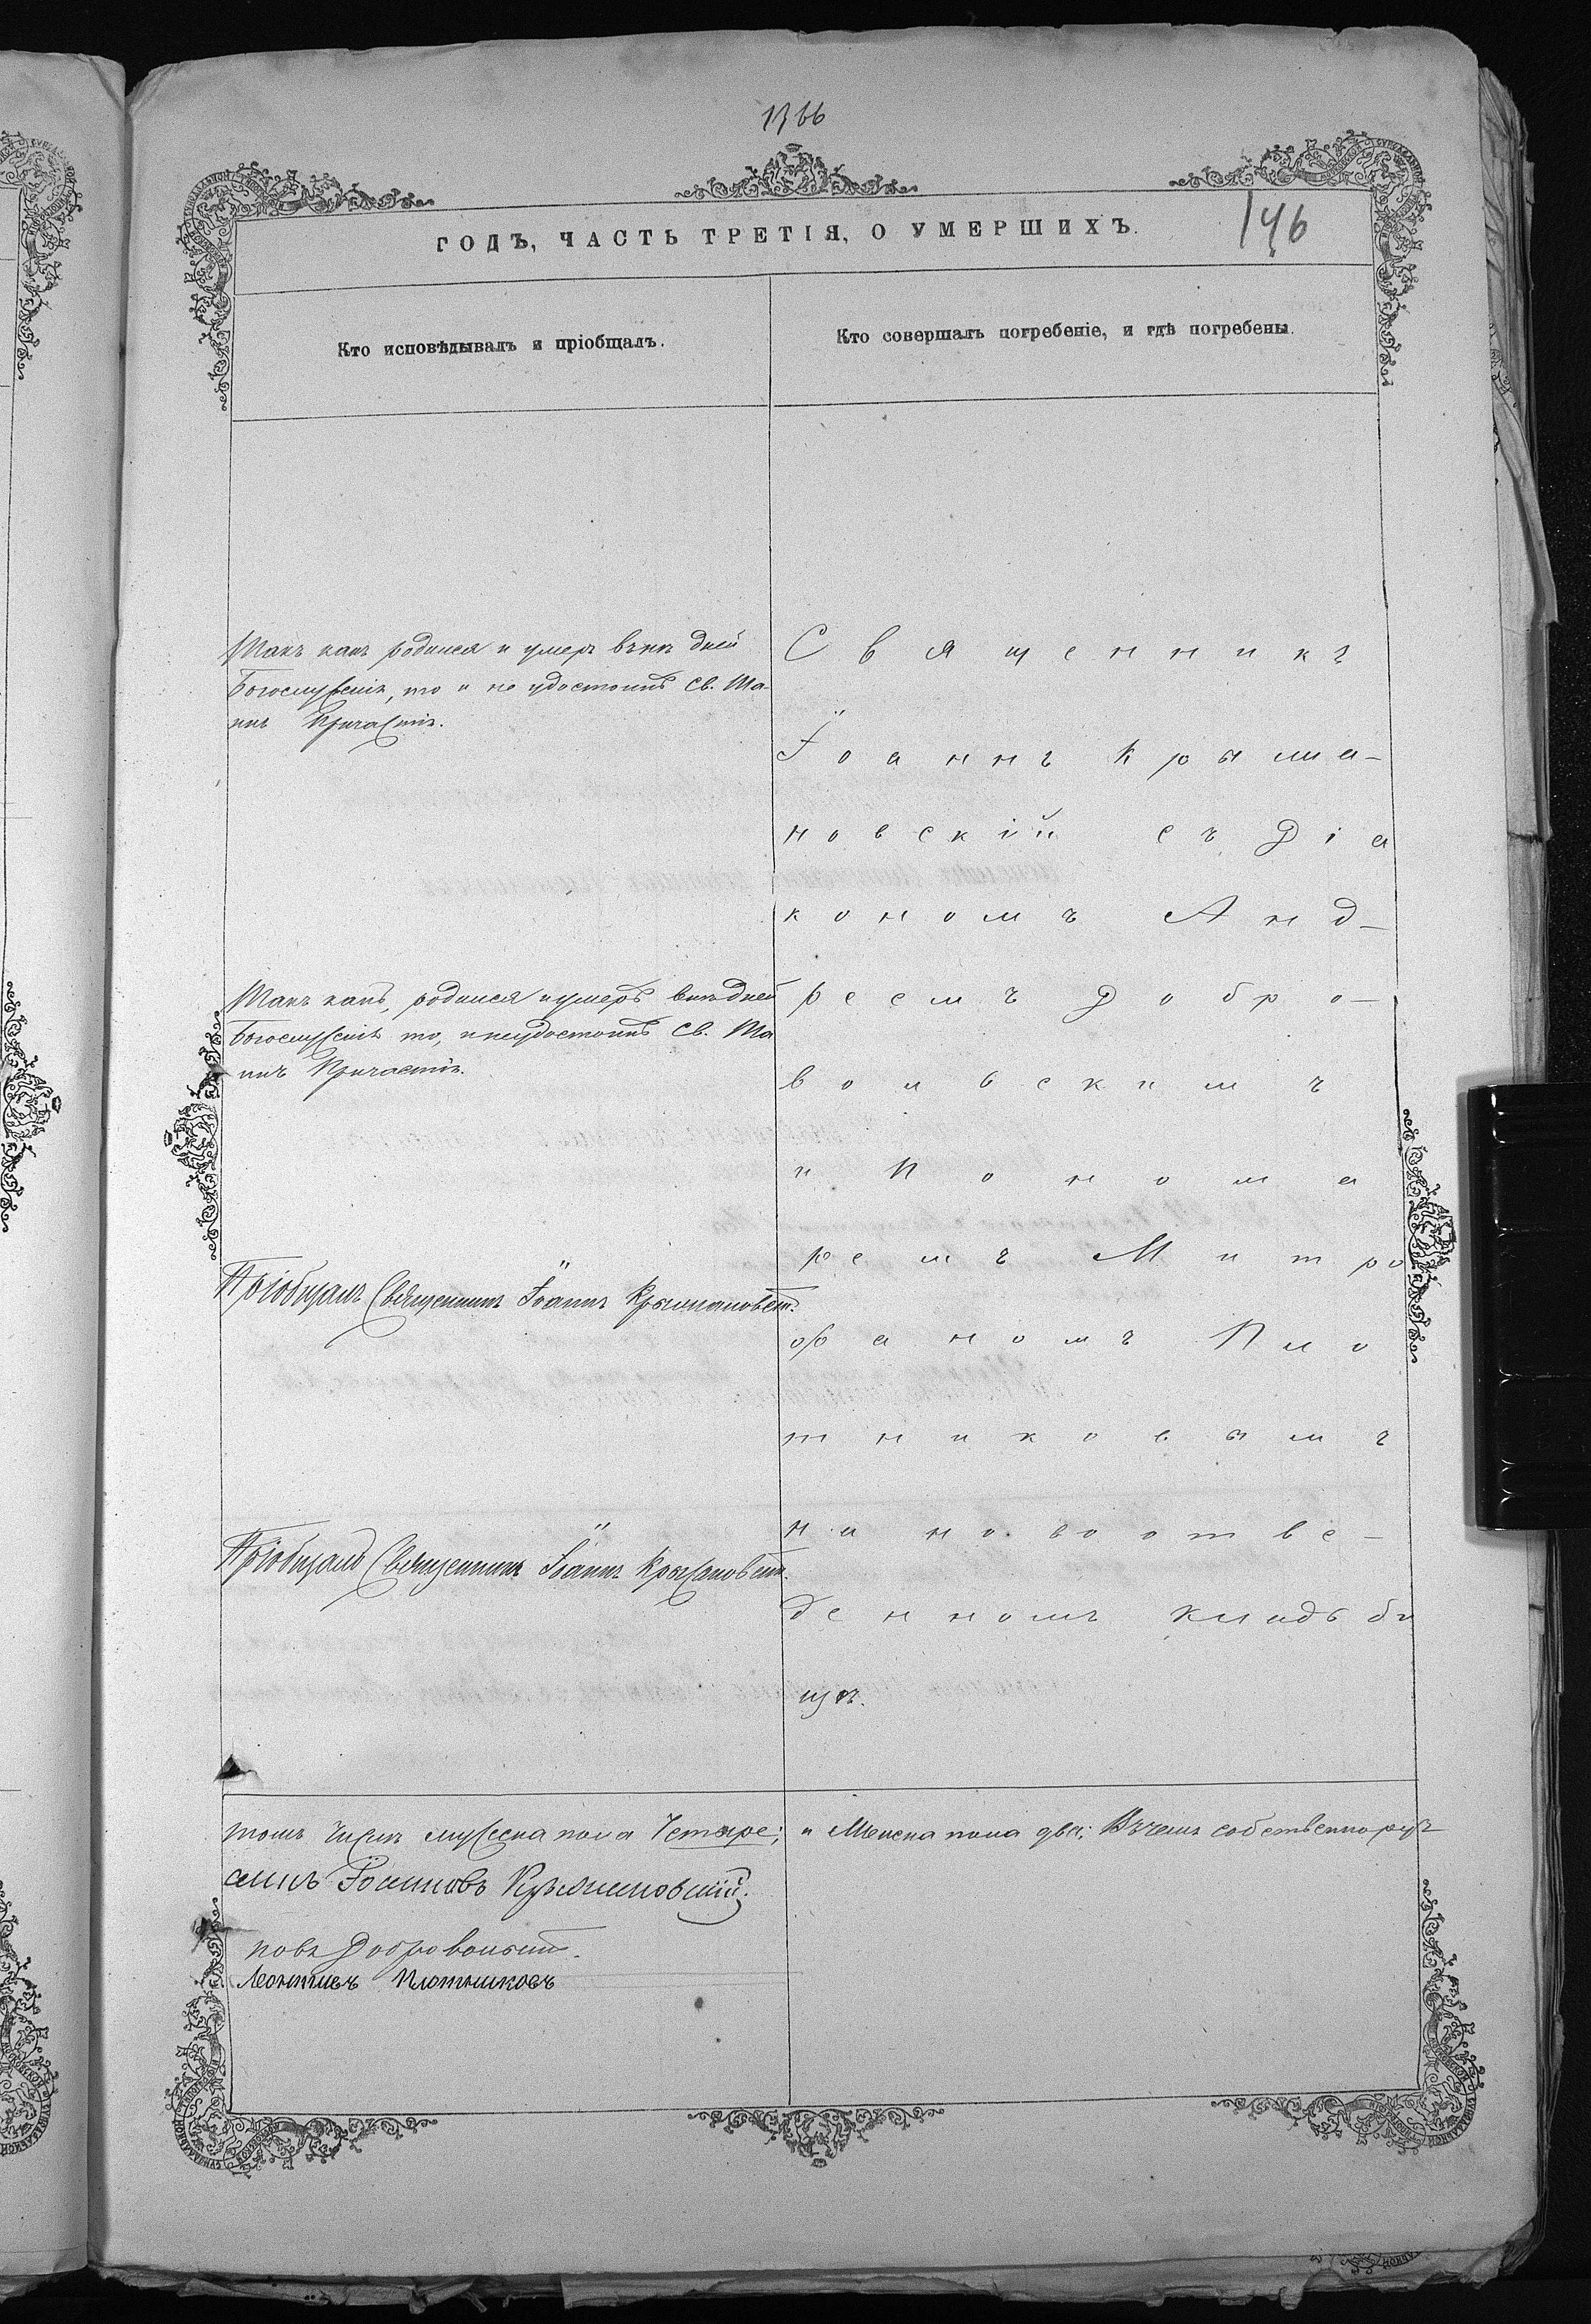 1366
146
ГОДЪ, ЧАСТЬ ТРЕТІЯ, О УМЕРШИХЪ.
Кто исповѣдывалъ и пріобщалъ.
Кто совершалъ погребеніе, и гдѣ погребены.
Такъ какъ родился и умеръ внѣ дней
Богослуженія, то и не удостоинъ Св. Та-
инъ Причастія.
Такъ какъ, родился и умеръ внѣ дней
Богослуженія то, и неудостоинъ Св. Та
инъ Причастія.
Пріобщалъ Священникъ Іоаннъ Крышановскій.
Пріобщалъ Священникъ Іоаннъ Крышановскій.
Священникъ
Іоаннъ Крыша-
новскій съ Діа
кономъ Анд-
реемъ Добро-
вольскимъ
и Понома
ремъ Митро
фаномъ Пло
тниковымъ
на новоотве-
денномъ кладьби
щѣ.
томъ числѣ мужеска пола Четыре; и Женска пола два; Въ чемъ собственнорух
Іоанновъ Крышановскій.
повъ Добровольскій.
Леонтьевъ Плотниковъ